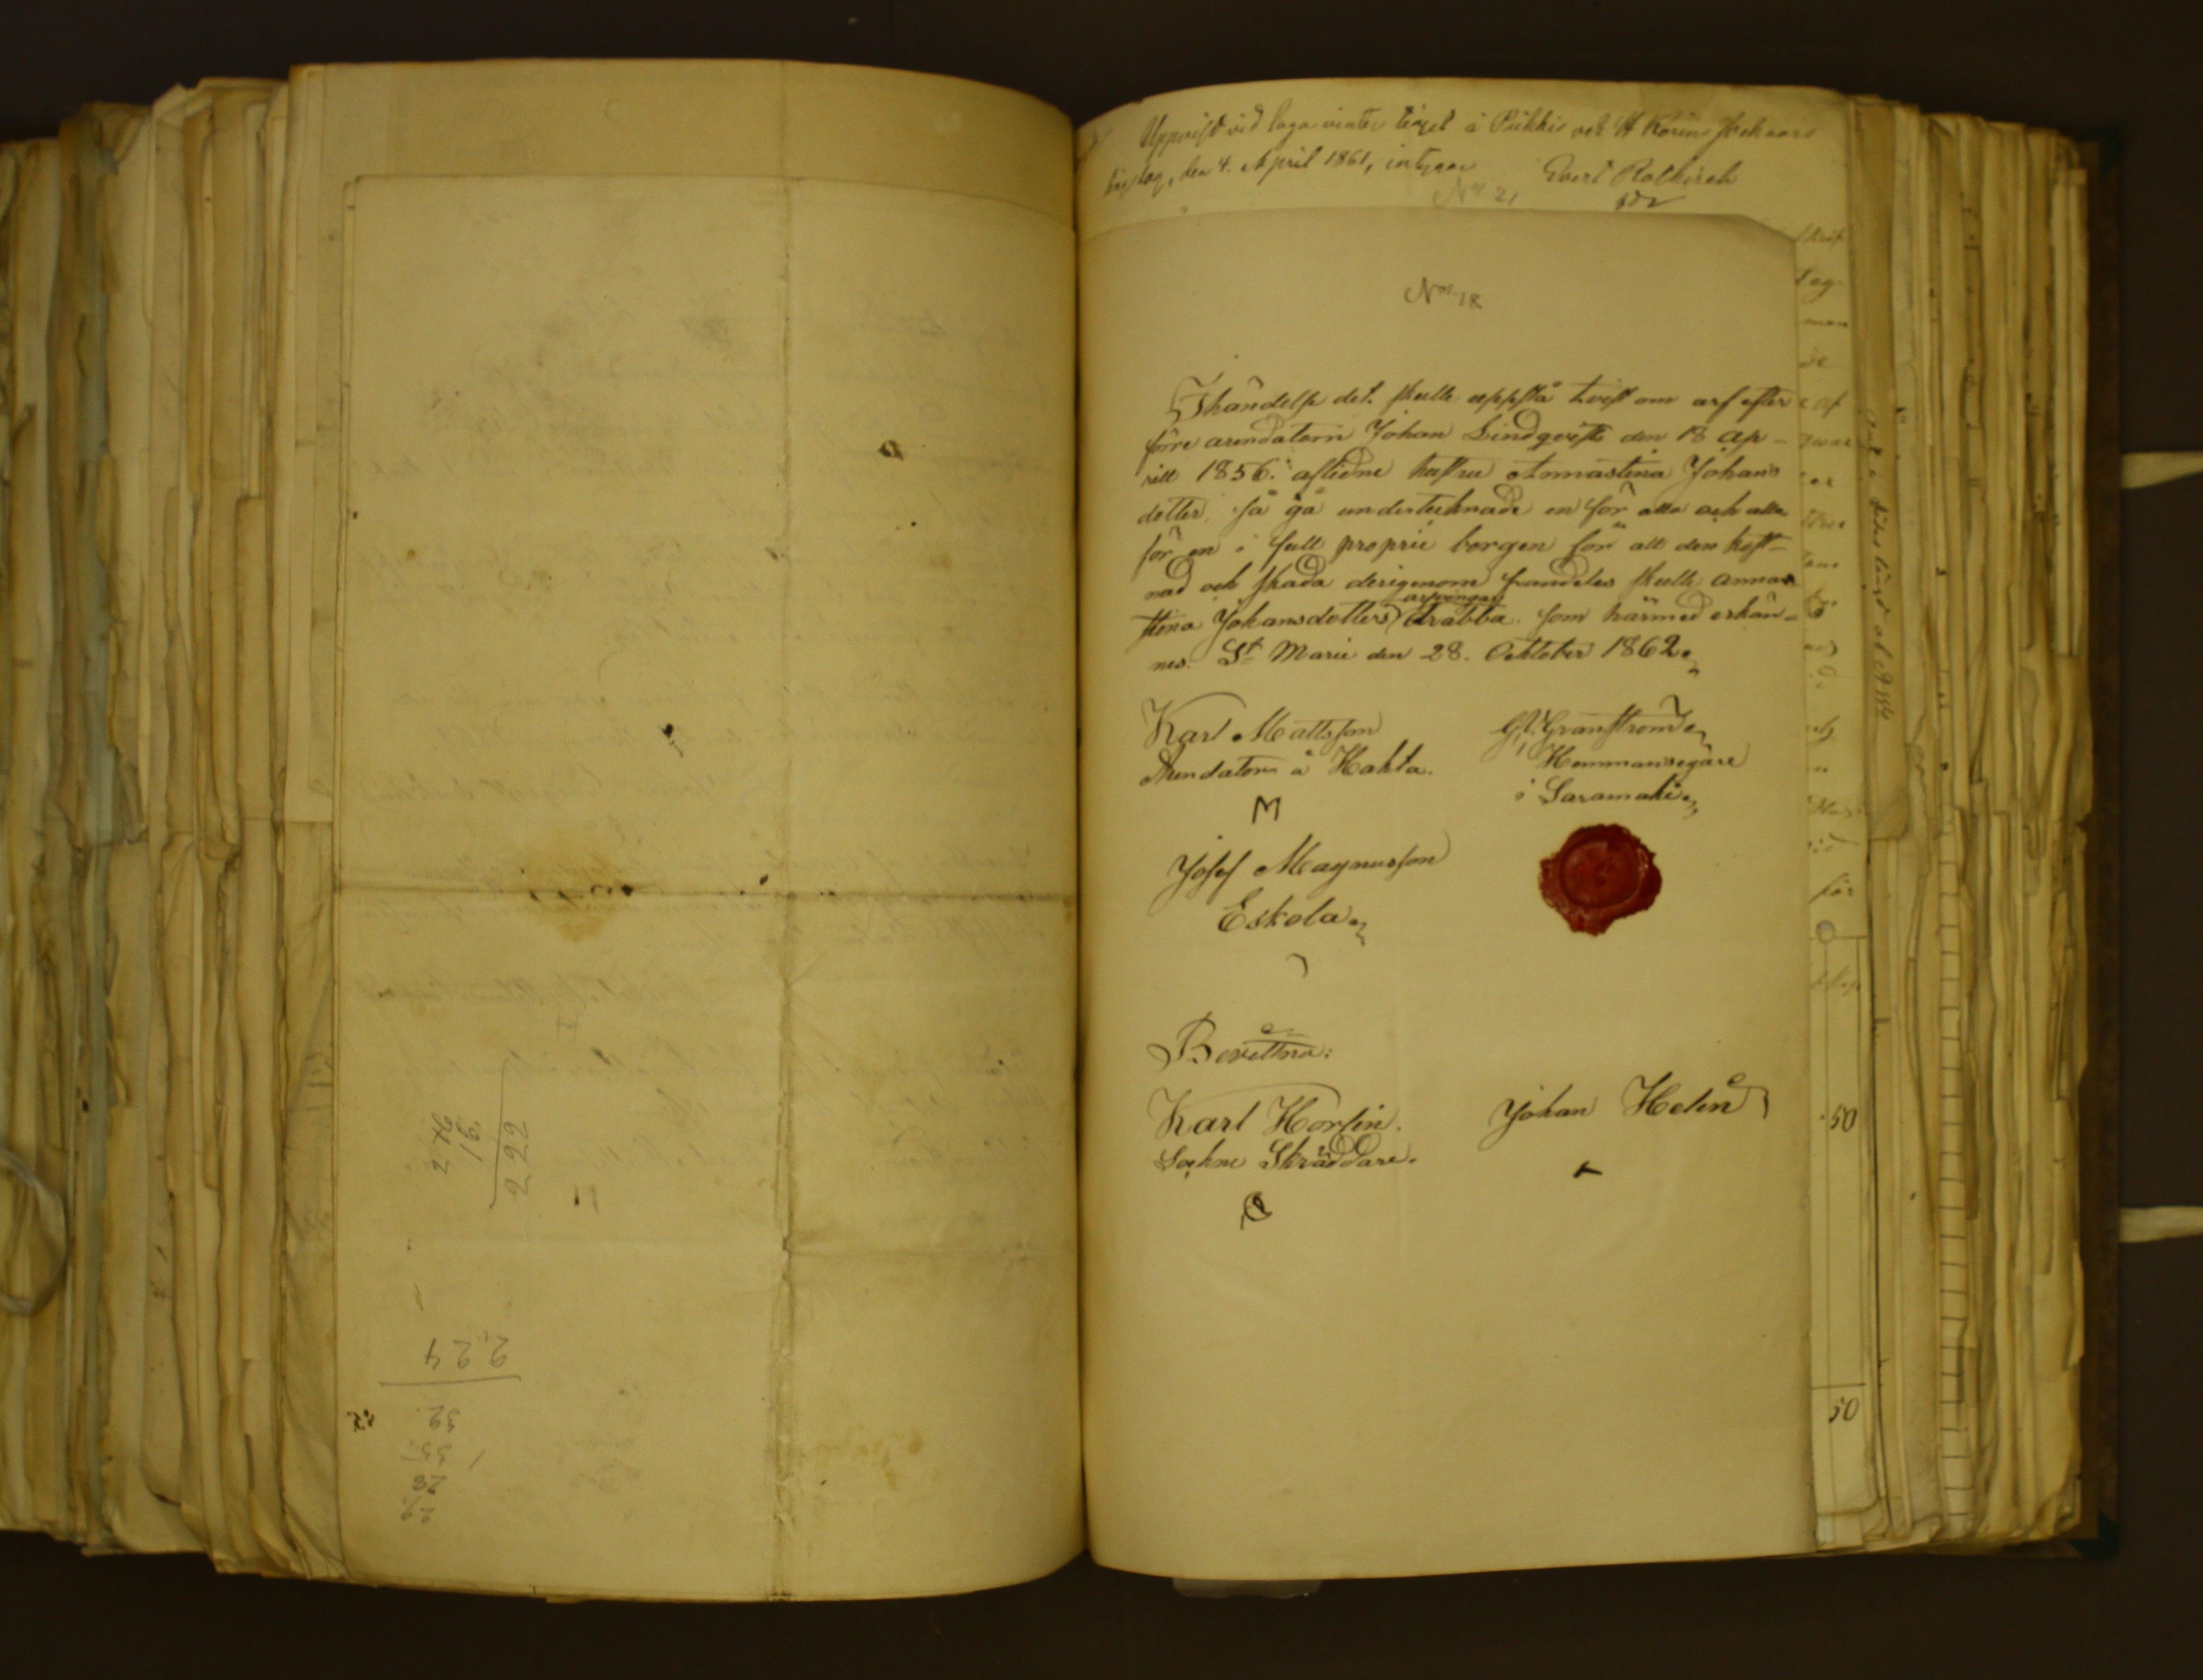 Uppvist vid laga vinter tinget å Piikkis och St Karins sochnars
tingslag, den 4. April 1861, intygar Evert Rotkirch
No 21
No 18
Ihändelse det. skulle uppstå tvist om arf efter
förre arendatorn Johan Lindqvists den 18 Ap-
rill 1856. aflidne hustru Annastina Johans
dotter, så gå undertecknade en för alla och alla
för en i full proprie borgen för all den kost-
nad och skada derigenom framdeles skulle Anna
stina Johansdotters arfvingar drabba. som härmed erkän-
nes. St Marie den 28. Ocktober 1862.
Karl Mattsson
Arendatorn å Hakta.
M
G. Granström
Hemmansegare
i Saramäki
Josef Magnusson
Eskola
Bevittna:
Karl Horsin.
Sockne Skräddare.
Johan Helen
246
16.
222
2,24
32.
55.
28
29.
50
50